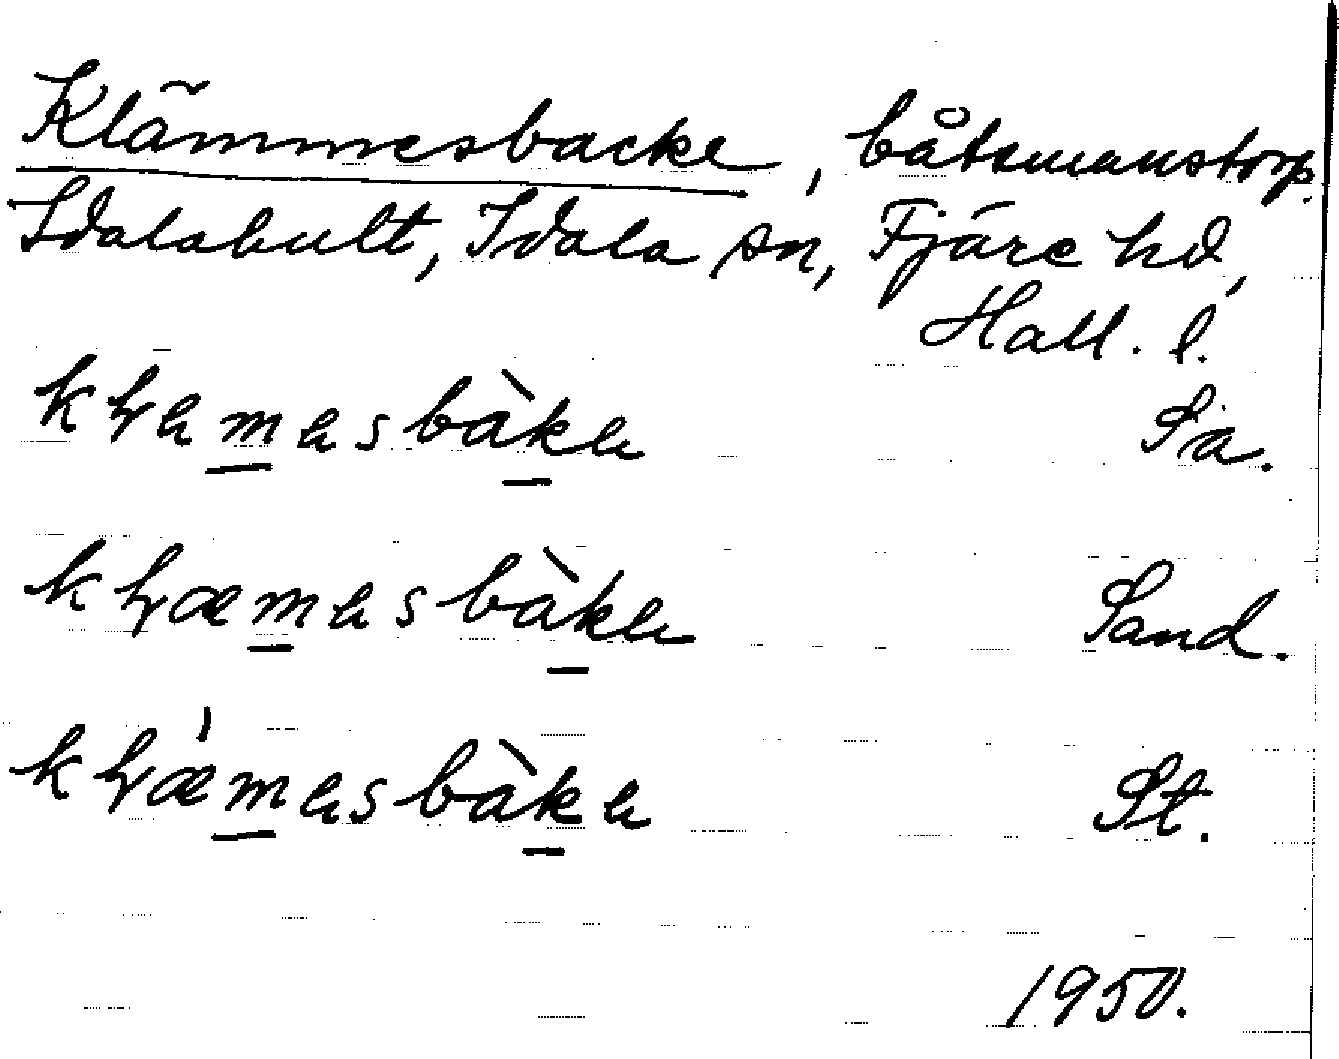 Klämmesbacke, båtsmanstorp.
Idalahult, Idala sn, Fjäre hd,
Hall. l.
kɽamasbàka Sa.
kɽæmasbàka Sand.
kɽæ̀masbàka St.
1950.